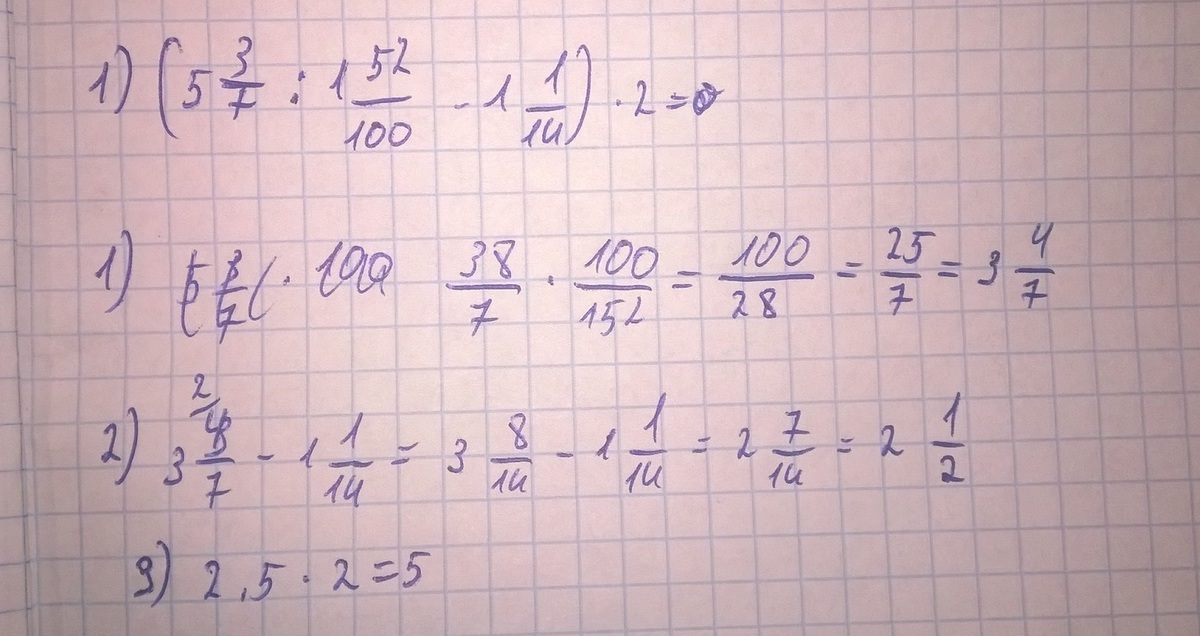 1) (5 3/7 : 1 52/100 - 1 1/14) · 2 =
1) 38/7 · 100/152 = 100/28 = 25/7 = 3 4/7
2) 3 4/7 - 1 1/14 = 3 8/14 - 1 1/14 = 2 7/14 = 2 1/2
3) 2,5 · 2 = 5